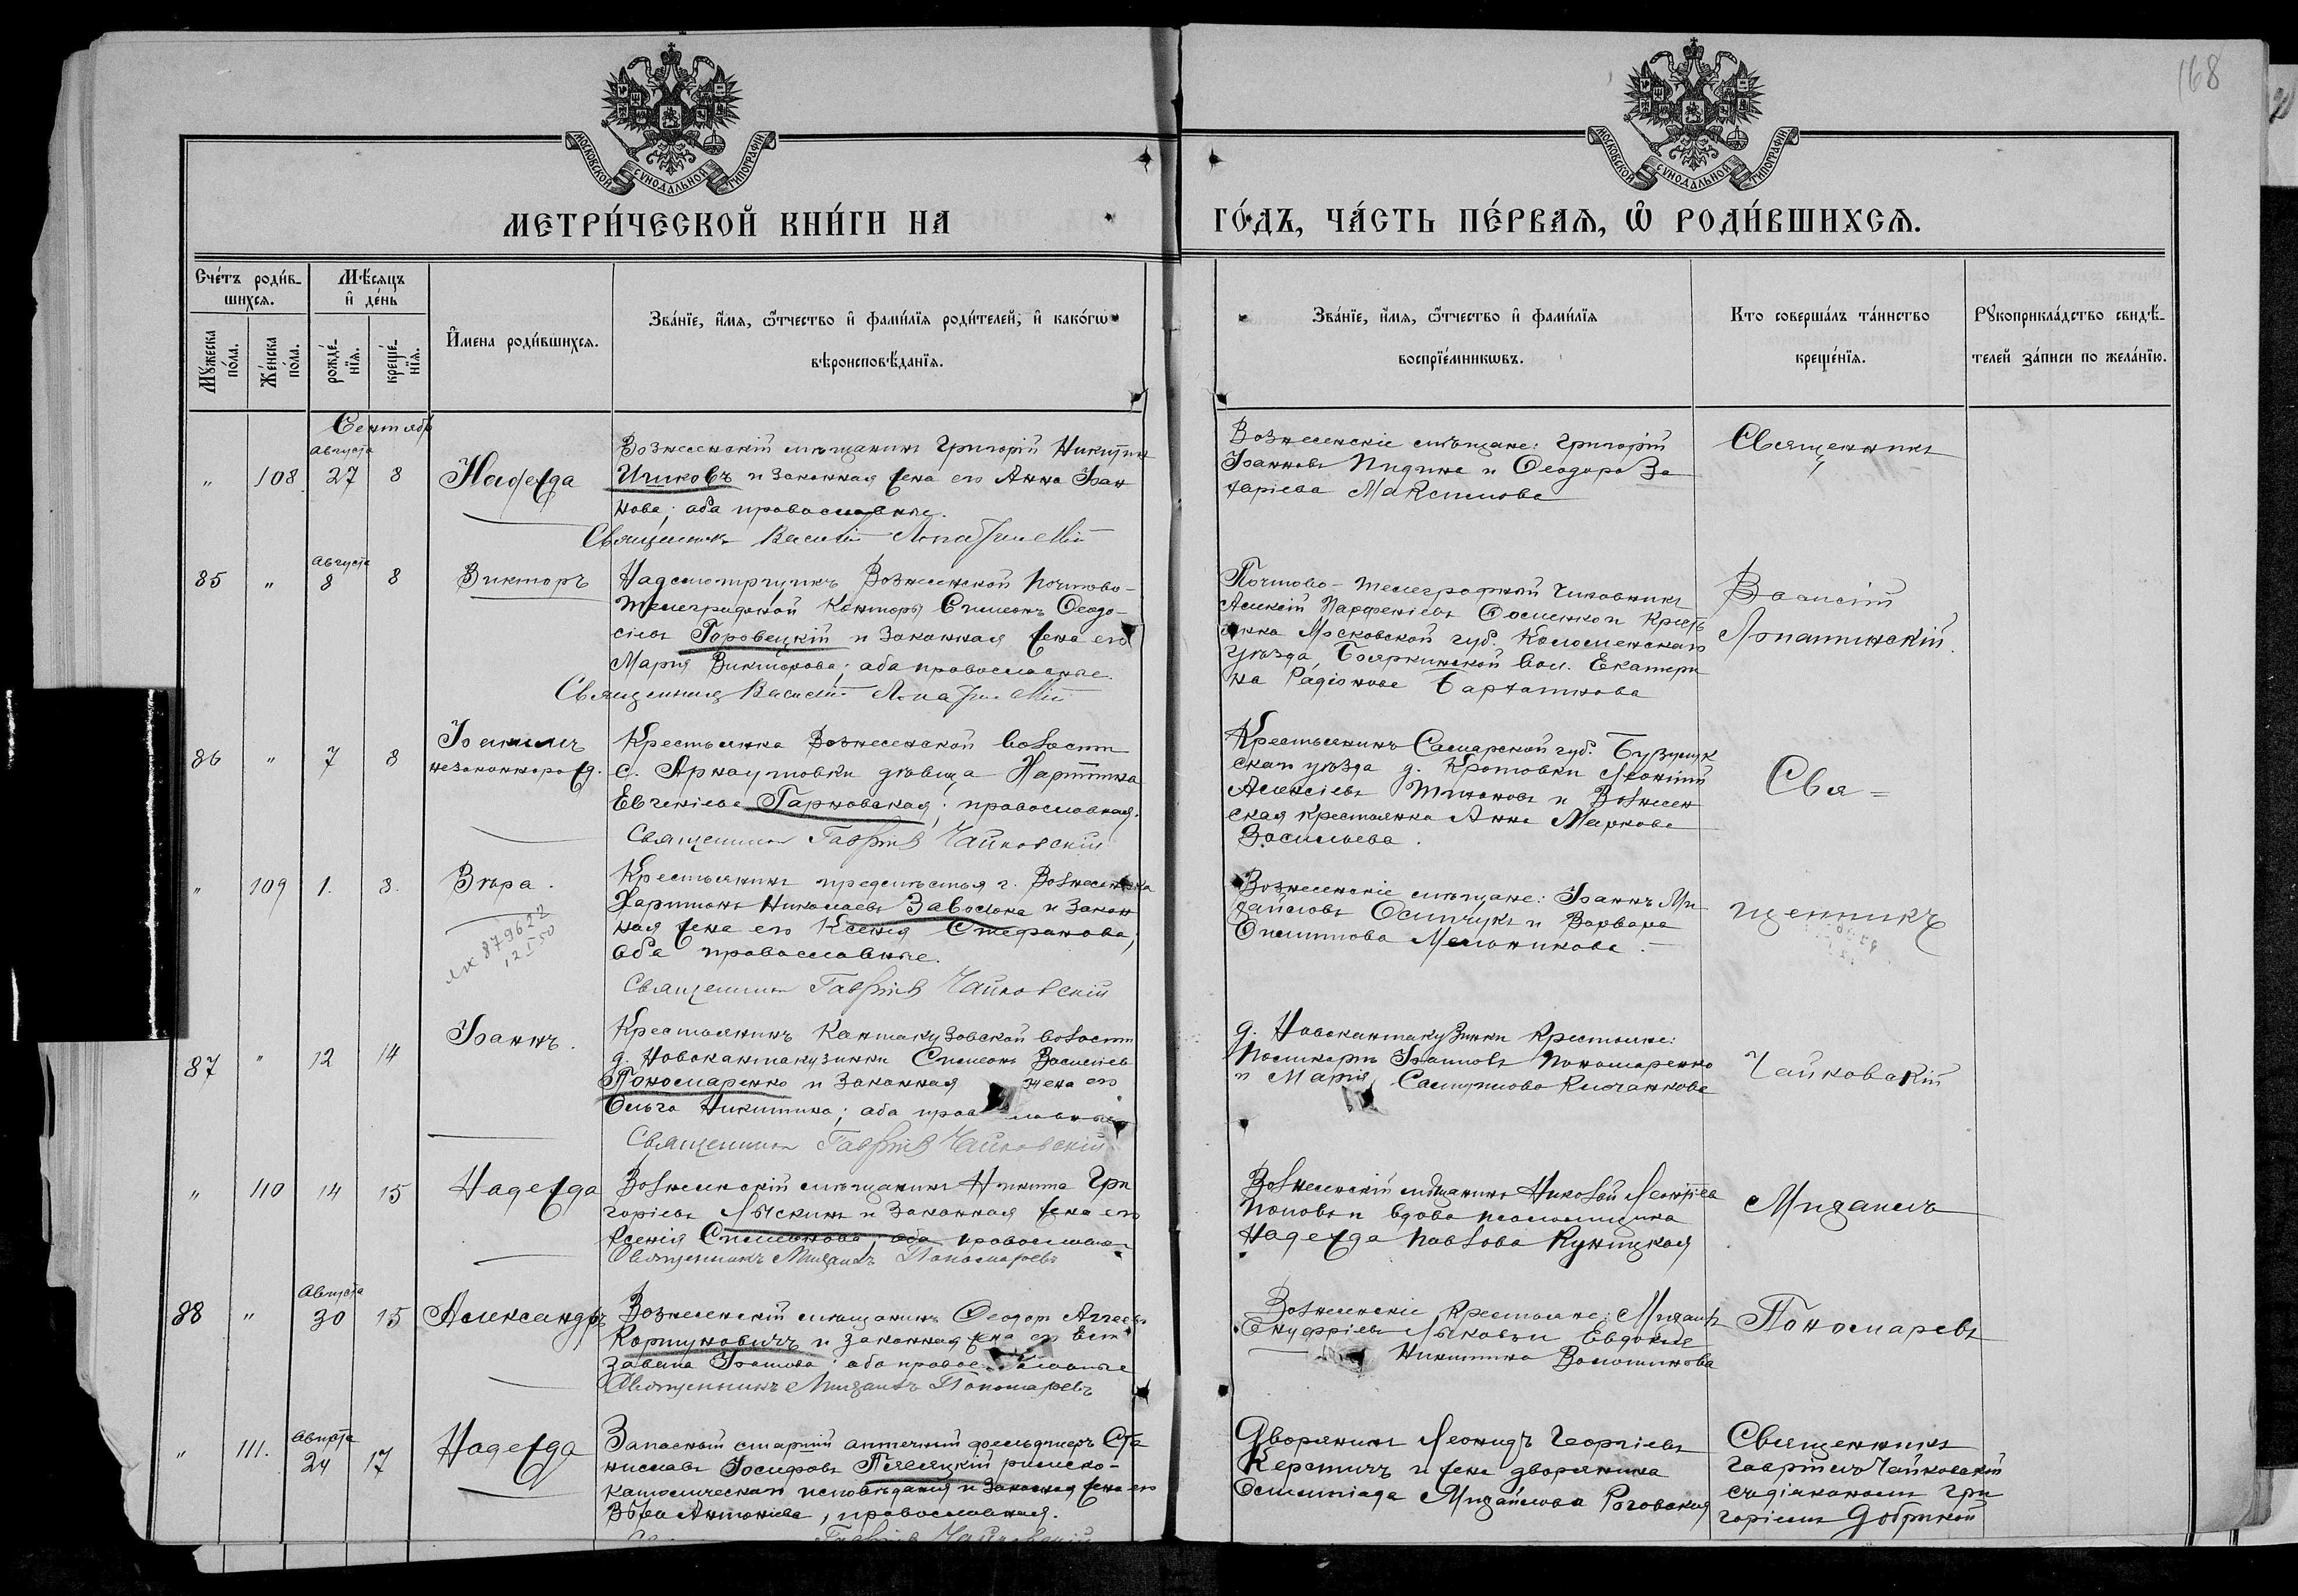 168
МОСКОВСКОЙ СУНОДАЛЬНОЙ ТИПОГРАФІИ
МОСКОВСКОЙ СУНОДАЛЬНОЙ ТИПОГРАФІИ
МЕТРИ́ЧЕСКОЙ КНИ́ГИ НА
ГО́ДЪ, ЧА́СТЬ ПЕ́РВАѦ, Ѡ҆ РОДИ́ВШИХСѦ.
Сче́тъ роди́в-
шихсѧ.
Мѣ́сяцъ
и҆ де́нь
Мꙋ́жеска по́ла.
Же́нска по́ла.
рожде́-нїѧ.
креще́-нїѧ.
И҆мена роди́вшихсѧ.
Зва́нїе, и҆́мѧ, ѻ҆́тчество и҆ фами́лїѧ роди́телей, и҆ како́гѡ
вѣроисповѣ́данїѧ.
Зва́нїе, и҆́мѧ, ѻ҆́тчество и҆ фами́лїѧ
воспрїе́мникѡвъ.
Кто соверша́лъ та́инство
креще́нїѧ.
Рꙋкоприкла́дство свидѣ́-
телей за́писи по жела́нїю.
Сентябр
августа
" 108 27 8 Надежда
Вознесенскій мѣщанинъ Григорій Никитин
Ичиковъ и законная жена его Анна Іоан
нова; оба православные.
Священникъ Василій Лопатинскій
Вознесенскіе мѣщане: Григорій
Іоанновъ Пидина и Ѳеодора За
харіева Максимова
Священникъ
августа
85 " 8 8 Викторъ
Надсмотрщикъ Вознесенской Почтово-
Телеграфной Конторы Симеонъ Ѳеодо-
сіевъ Горовецкій и законная жена его
Марія Викторова; оба православные.
Священникъ Василій Лопатинскій
Почтово-телеграфный чиновникъ
Алексій Парфеніевъ Фоменко и Кресть
янка Московской губ. Коломенскаго
уѣзда, Бояркинской вол. Екатери
на Радіонова Бархатнова
Василій
Лопатинскій.
86 " 7 8 Іоакимъ
незаконнорожд.
Крестьянка Вознесенской волости
с. Арнаутовки дѣвица Харитина
Евгеніева Гарновская; православная.
Священникъ Гавріилъ Чайковскій
Крестьянинъ Самарской губ. Бузулук
скаго уѣзда д. Кротовки Леонтій
Алексіевъ Тихоновъ и Вознесен
ская крестьянка Анна Маркова
Васильева.
Свя=
" 109 1. 8. Вѣра.
879622
12 I 50
Крестьянинъ предмѣстья г. Вознесенска
Харитонъ Николаевъ Заволока и закон
ная жена его Ксенія Стефанова;
оба православные.
Священникъ Гавріилъ Чайковскій
Вознесенскіе мѣщане: Іоаннъ Ми
хайловъ Осипчукъ и Варвара
Филиппова Мельникова.
щенникъ
87 " 12 14 Іоаннъ.
Крестьянинъ Кантакузовской волости
д. Новокантакузинки Симеонъ Васильев
Пономаренко и законная жена его
Ольга Никитина; оба православные
Священникъ Гавріилъ Чайковскій
д. Новокантакузинки крестьяне:
Поликарпъ Іоанновъ Пономаренко
и Марія Самуилова Ключанкова
Чайковскій
" 110 14 15 Надежда
Вознесенскій мѣщанинъ Никита Гри
горіевъ Лыскинъ и законная жена его
Ксенія Симеонова; оба православн
Священникъ Михаилъ Пономаревъ
Вознесенскій мѣщанинъ Николай Леонтіев
Поповъ и вдова псаломщика
Надежда Павлова Куницкая
Михаилъ
Августа
88 " 30 15 Александръ
Вознесенскій мѣщанинъ Ѳеодот Аггеевъ
Коршуновичъ и законная жена его Ели
завета Іоаннова; оба православные
Священникъ Михаилъ Пономаревъ
Вознесенскіе крестьяне: Михаилъ
Онуфріевъ Лысковъ и Евдокія
Никитина Волошинова
Пономаревъ
Августа
" 111. 24 17 Надежда
Запасный старшій аптечный фельдшеръ Ста
ниславъ Іосифовъ Плесяцкій римско-
католическаго исповѣданія и законная жена его
Вѣра Антоніева, православная.
Гавріилъ Чайковскій
Дворянинъ Леонидъ Георгіевъ
Керстичъ и жена дворянина
Олимпіада Михайлова Роговская
Священникъ
Гавріилъ Чайковскій
съ діакономъ Гри
горіемъ Добрицой